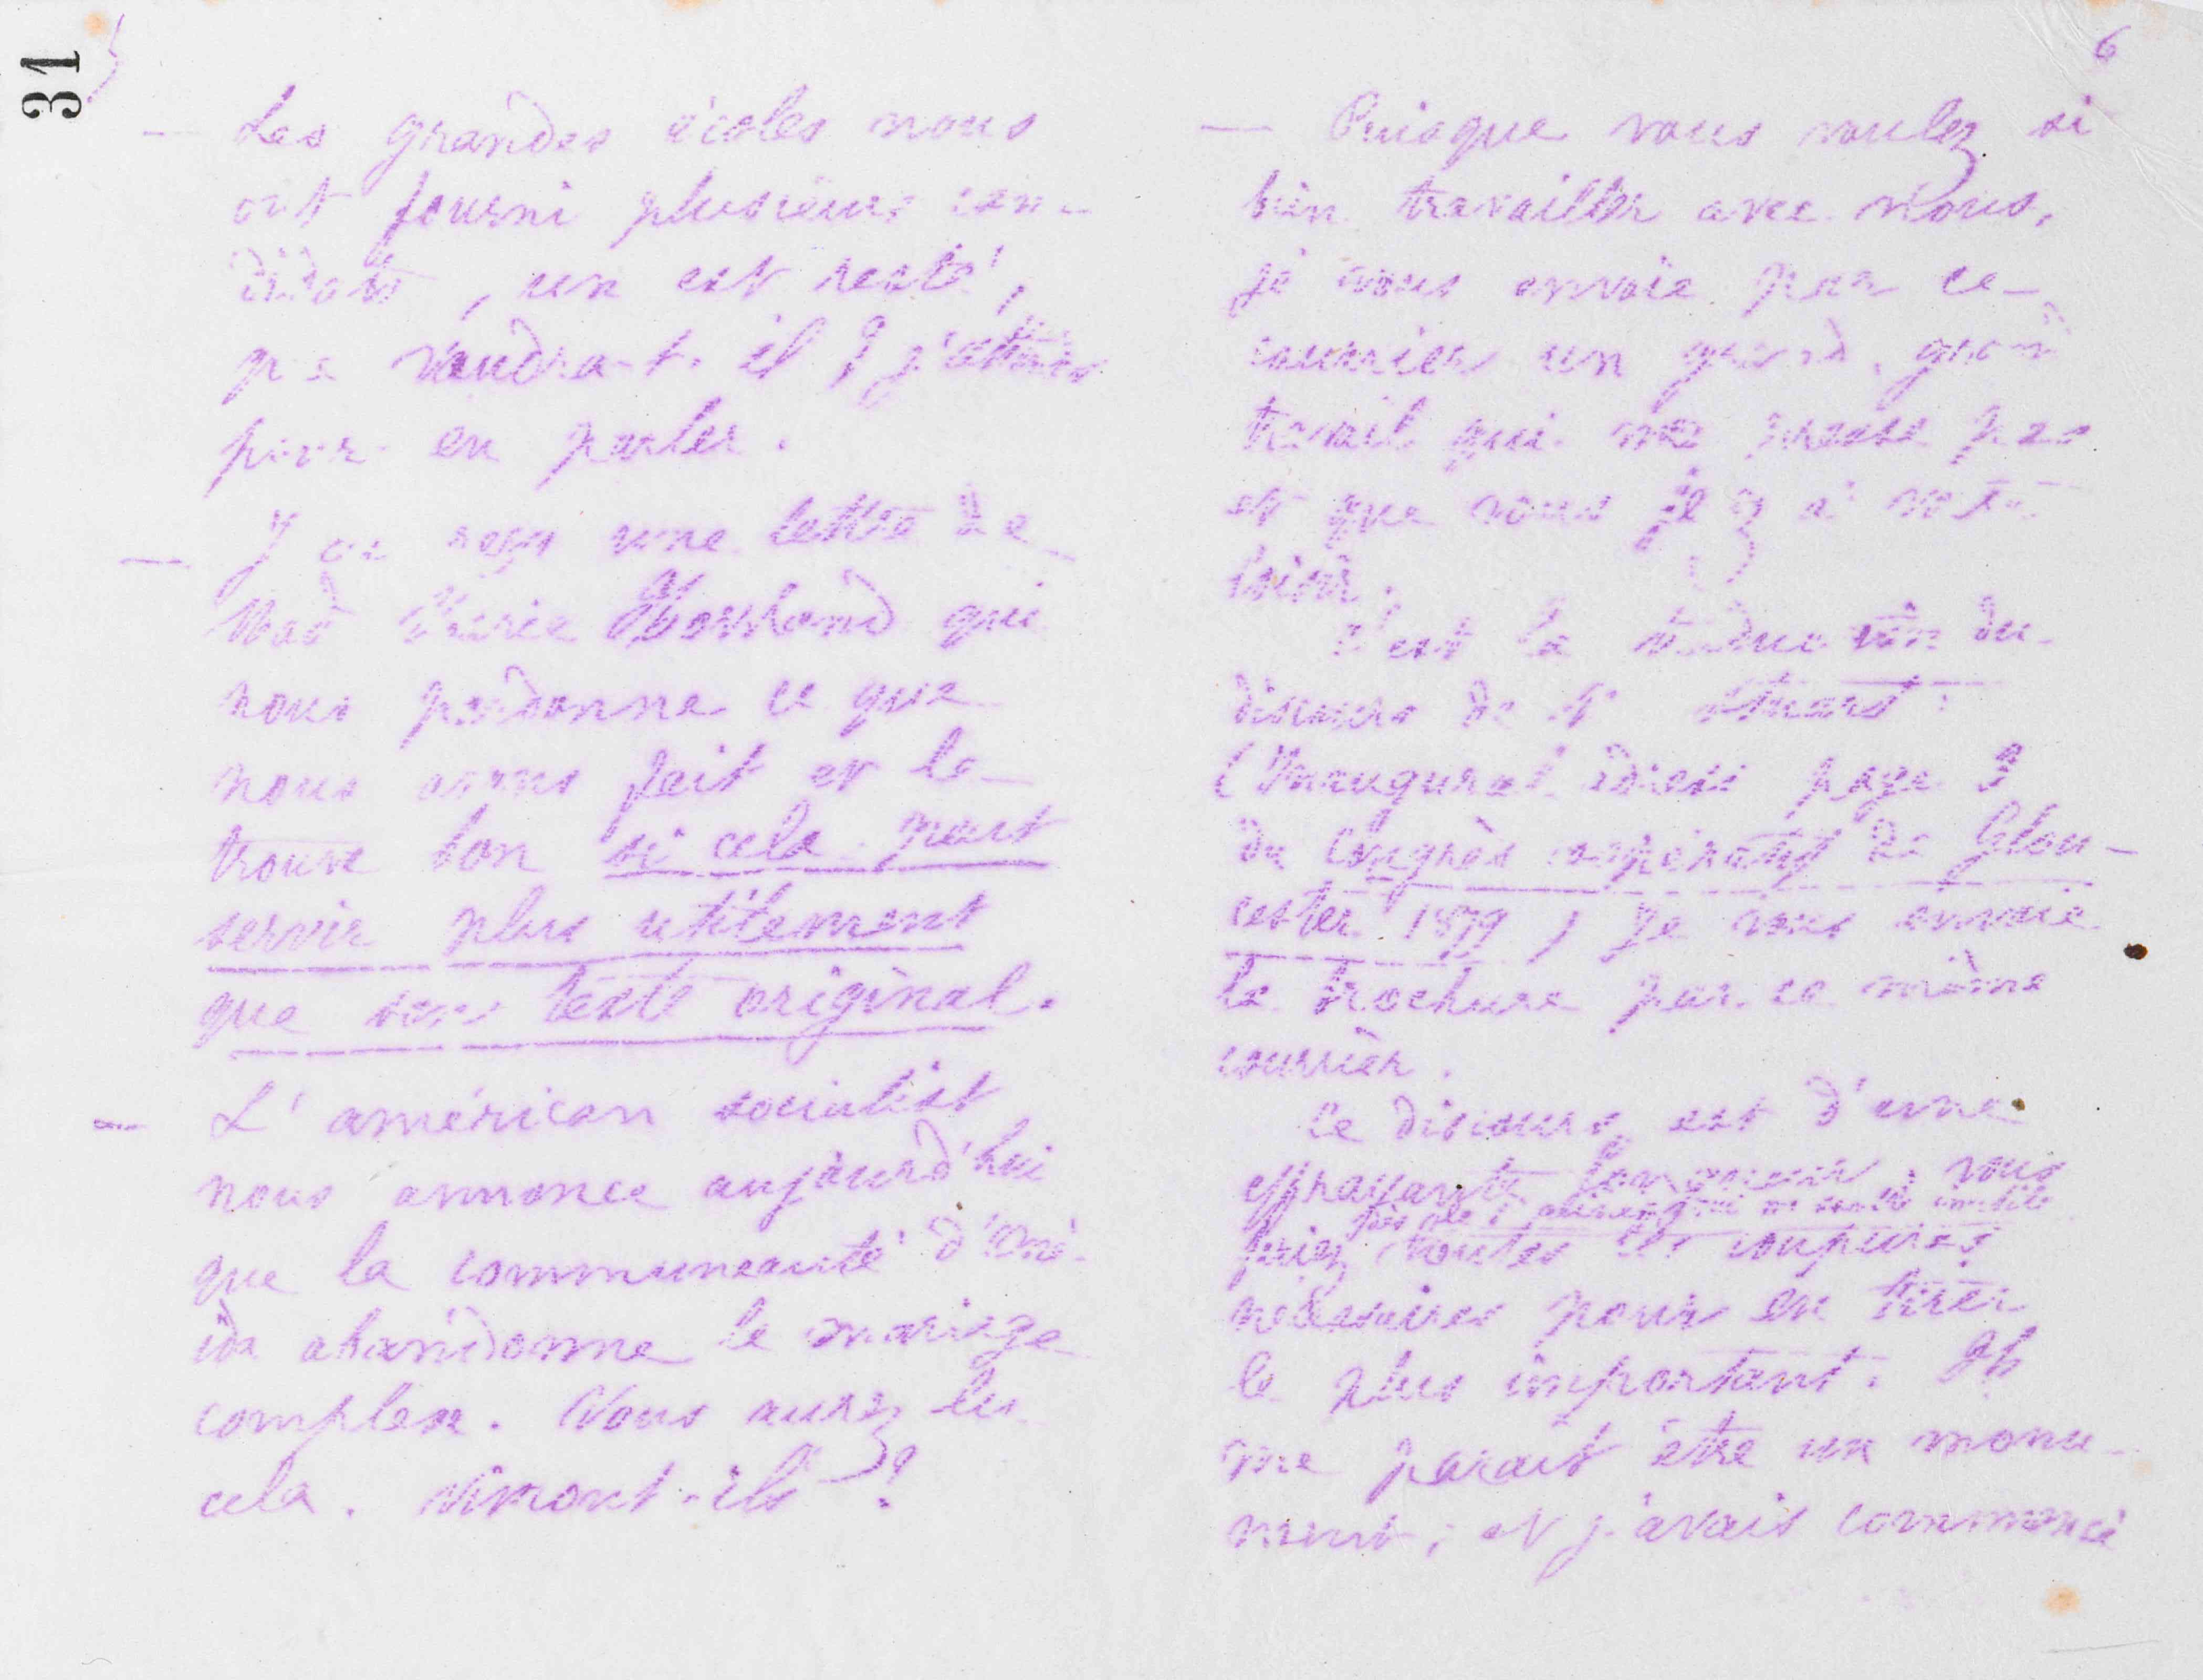 31
— Les grandes écoles nous
ont fourni plusieurs can-
didats, un est resté,
que vaudra-t-il ? j'attends
pour en parler.
— J'ai reçu une lettre de
Mad Marie Howland qui
nous pardonne ce que
nous avons fait et le
trouve bon si cela peut
servir plus utilement
que son texte original.
— L'américan socialist
nous annonce aujourd'hui
que la communeauté d'Oné-
ida abandonne le mariage
complexe. Vous aurez lu
cela. Vivront-ils ?
6
— Puisque vous voulez si
bien travailler avec nous,
je vous envoie par ce
courrier un grand, grand
travail qui ne presse pas
et que vous à
loisir.
C'est la traduction du
discours de Mr Stuart.
(Inaugural adress page 3
du Congrès coopératif de Glou-
cester 1879) Je vous envoie
la brochure par ce même
courrier.
Ce discours est d'une
effrayante longueur, vous
inutile
feriez toutes les coupures
nécessaires pour en tirer
le plus important. Il
me parait être un monu-
ment ; et j'avais commencé